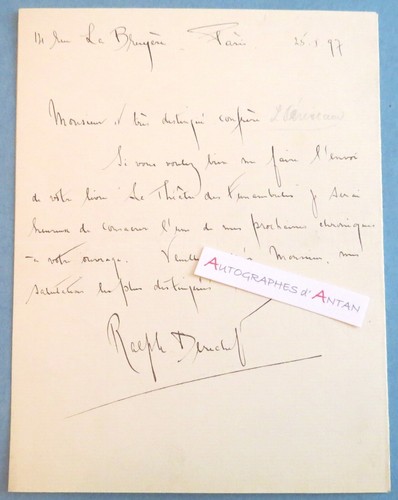 14 rue La Bruyère. Paris 25.1.97
Monsieur et très distingué confrère
Si vous voulez bien me faire l'envoi
de votre livre Le Théâtre des Funambules je serai
heureux de consacrer l'une de mes prochaines chroniques
à votre ouvrage. Monsieur, mes
salutations les plus distinguées
Ralph Derechef
AUTOGRAPHES d'ANTAN